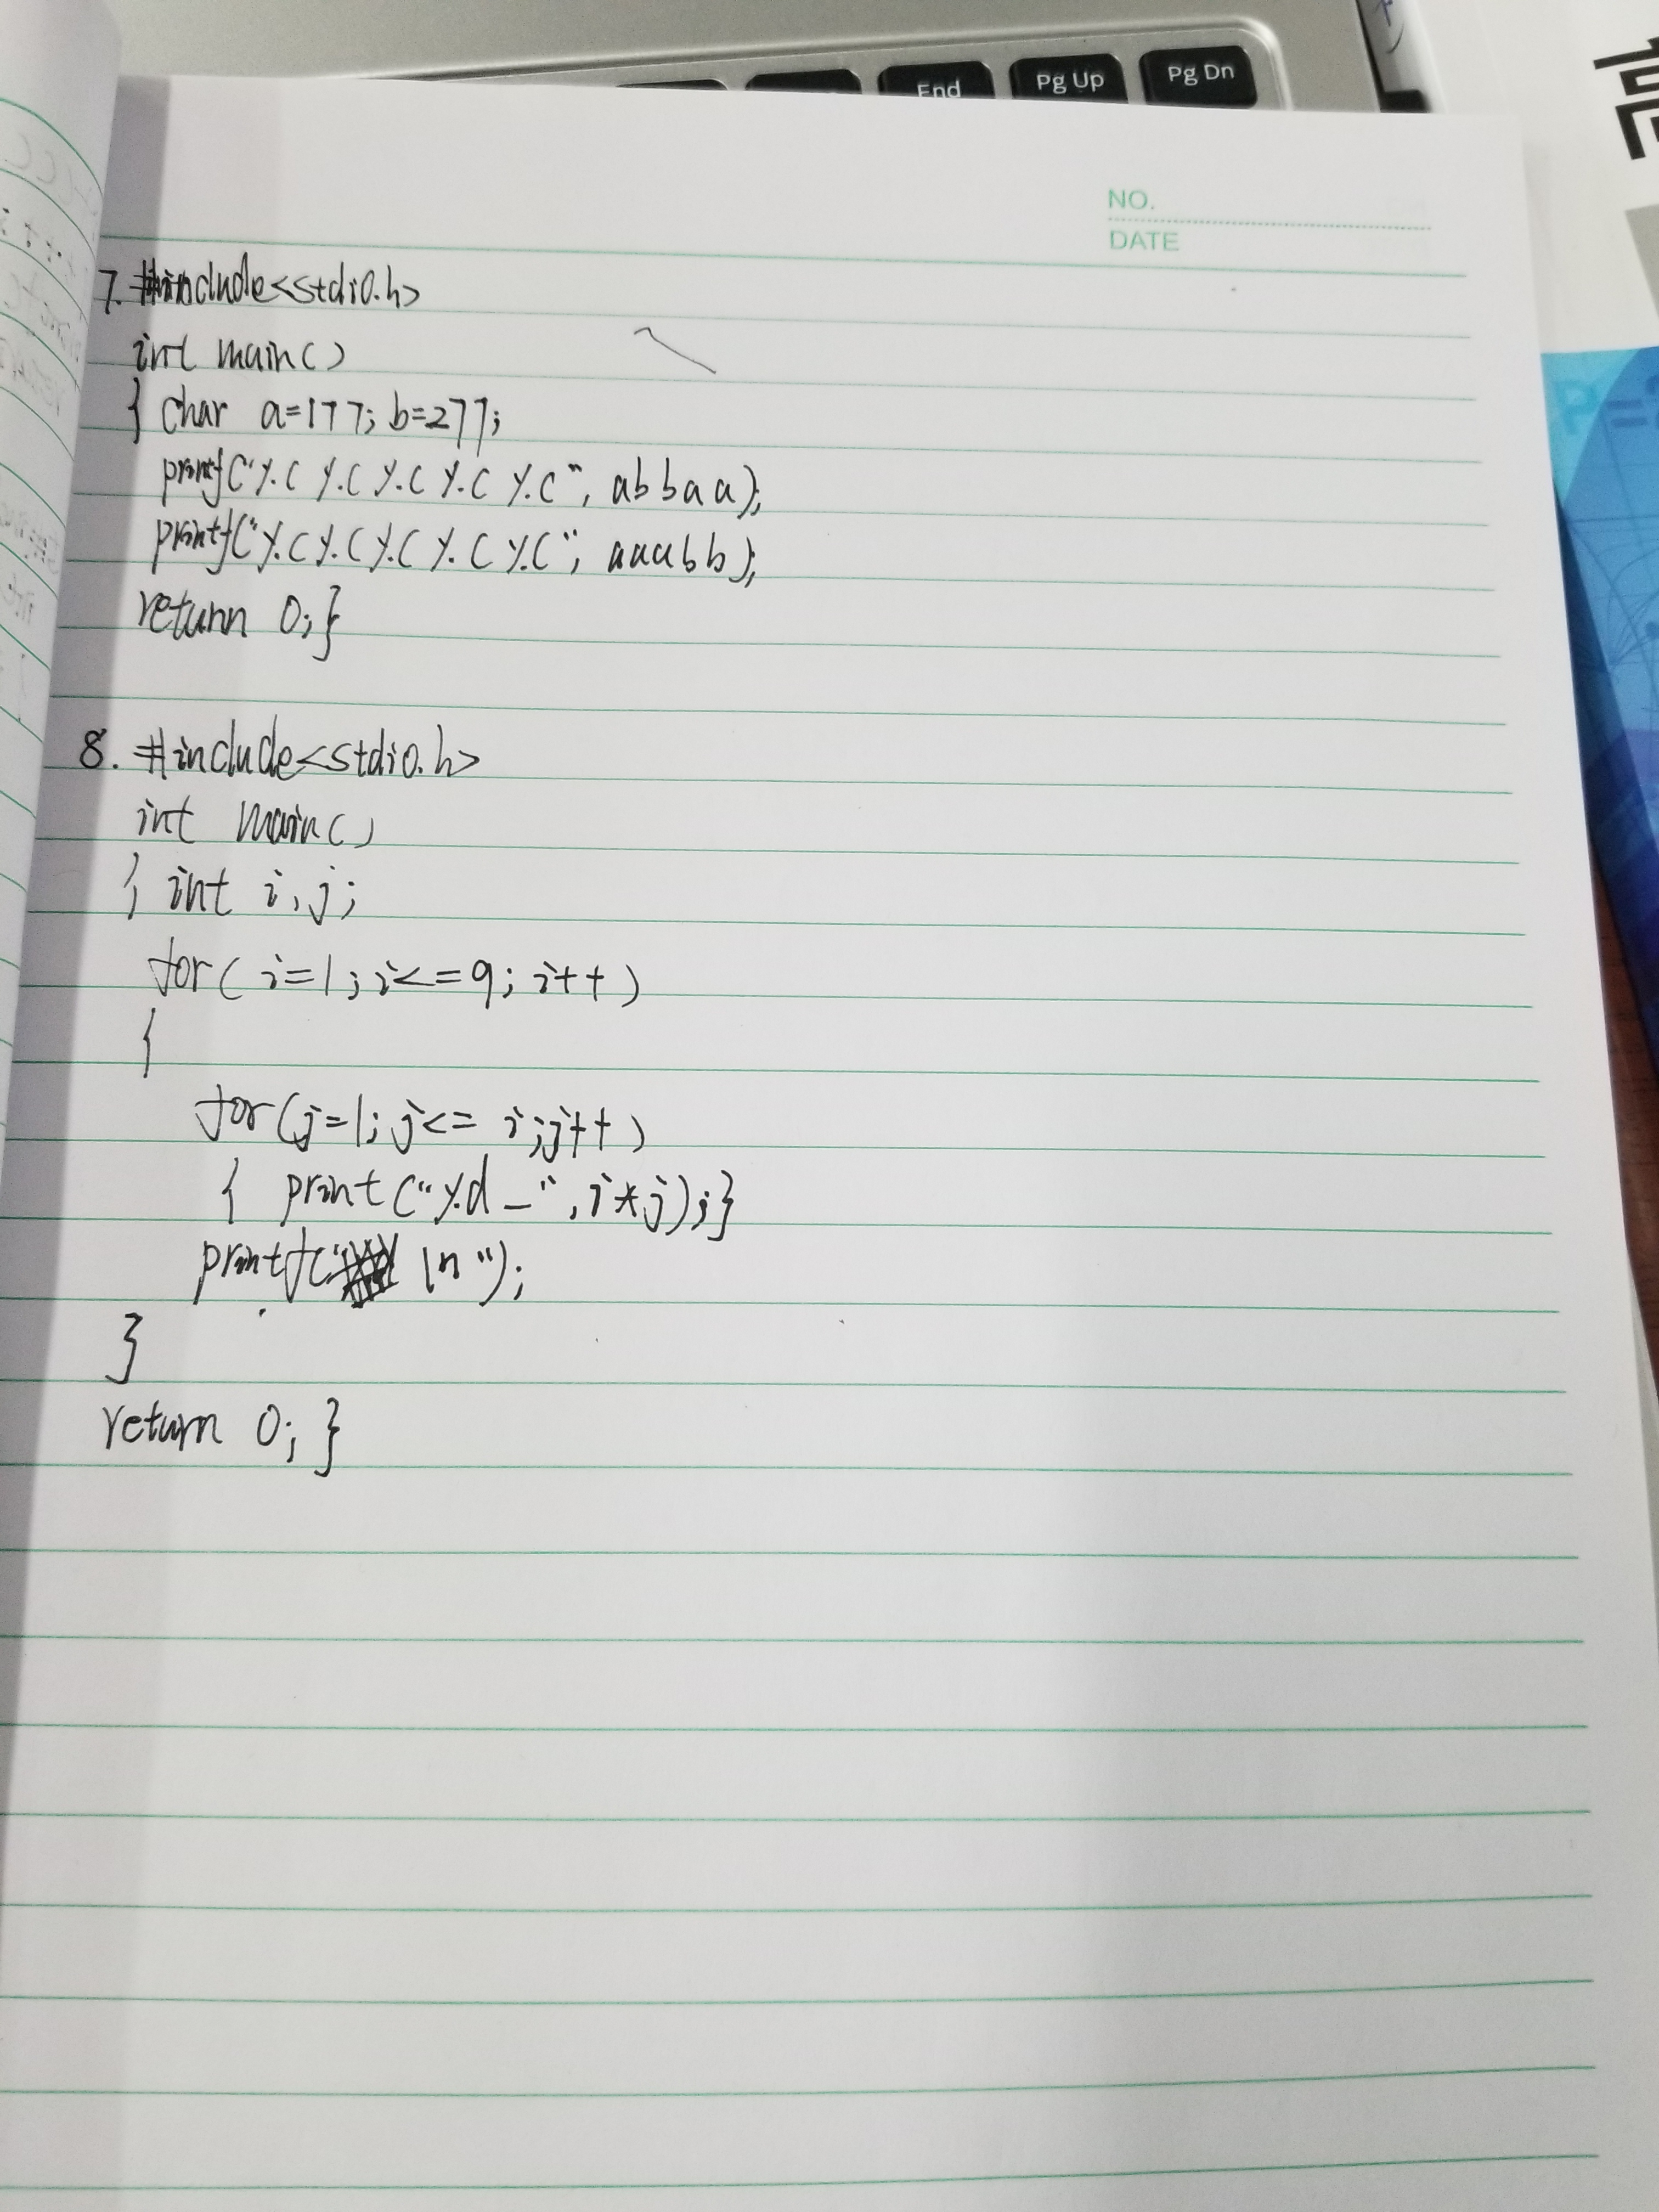 End Pg Up Pg Dn
高
NO.
DATE
7. #include<stdio.h>
int main()
{ char a=177; b=277;
printf("%c %c %c %c %c", abbaa);
printf("%c%c%c%c%c", aaabb);
return 0;}
8. #include<stdio.h>
int main()
{ int i,j;
for( i=1;i<=9; i++)
{
for(j=1; j<= i;j++)
{ print("%d_",i*j);}
printf(" \n");
}
return 0; }